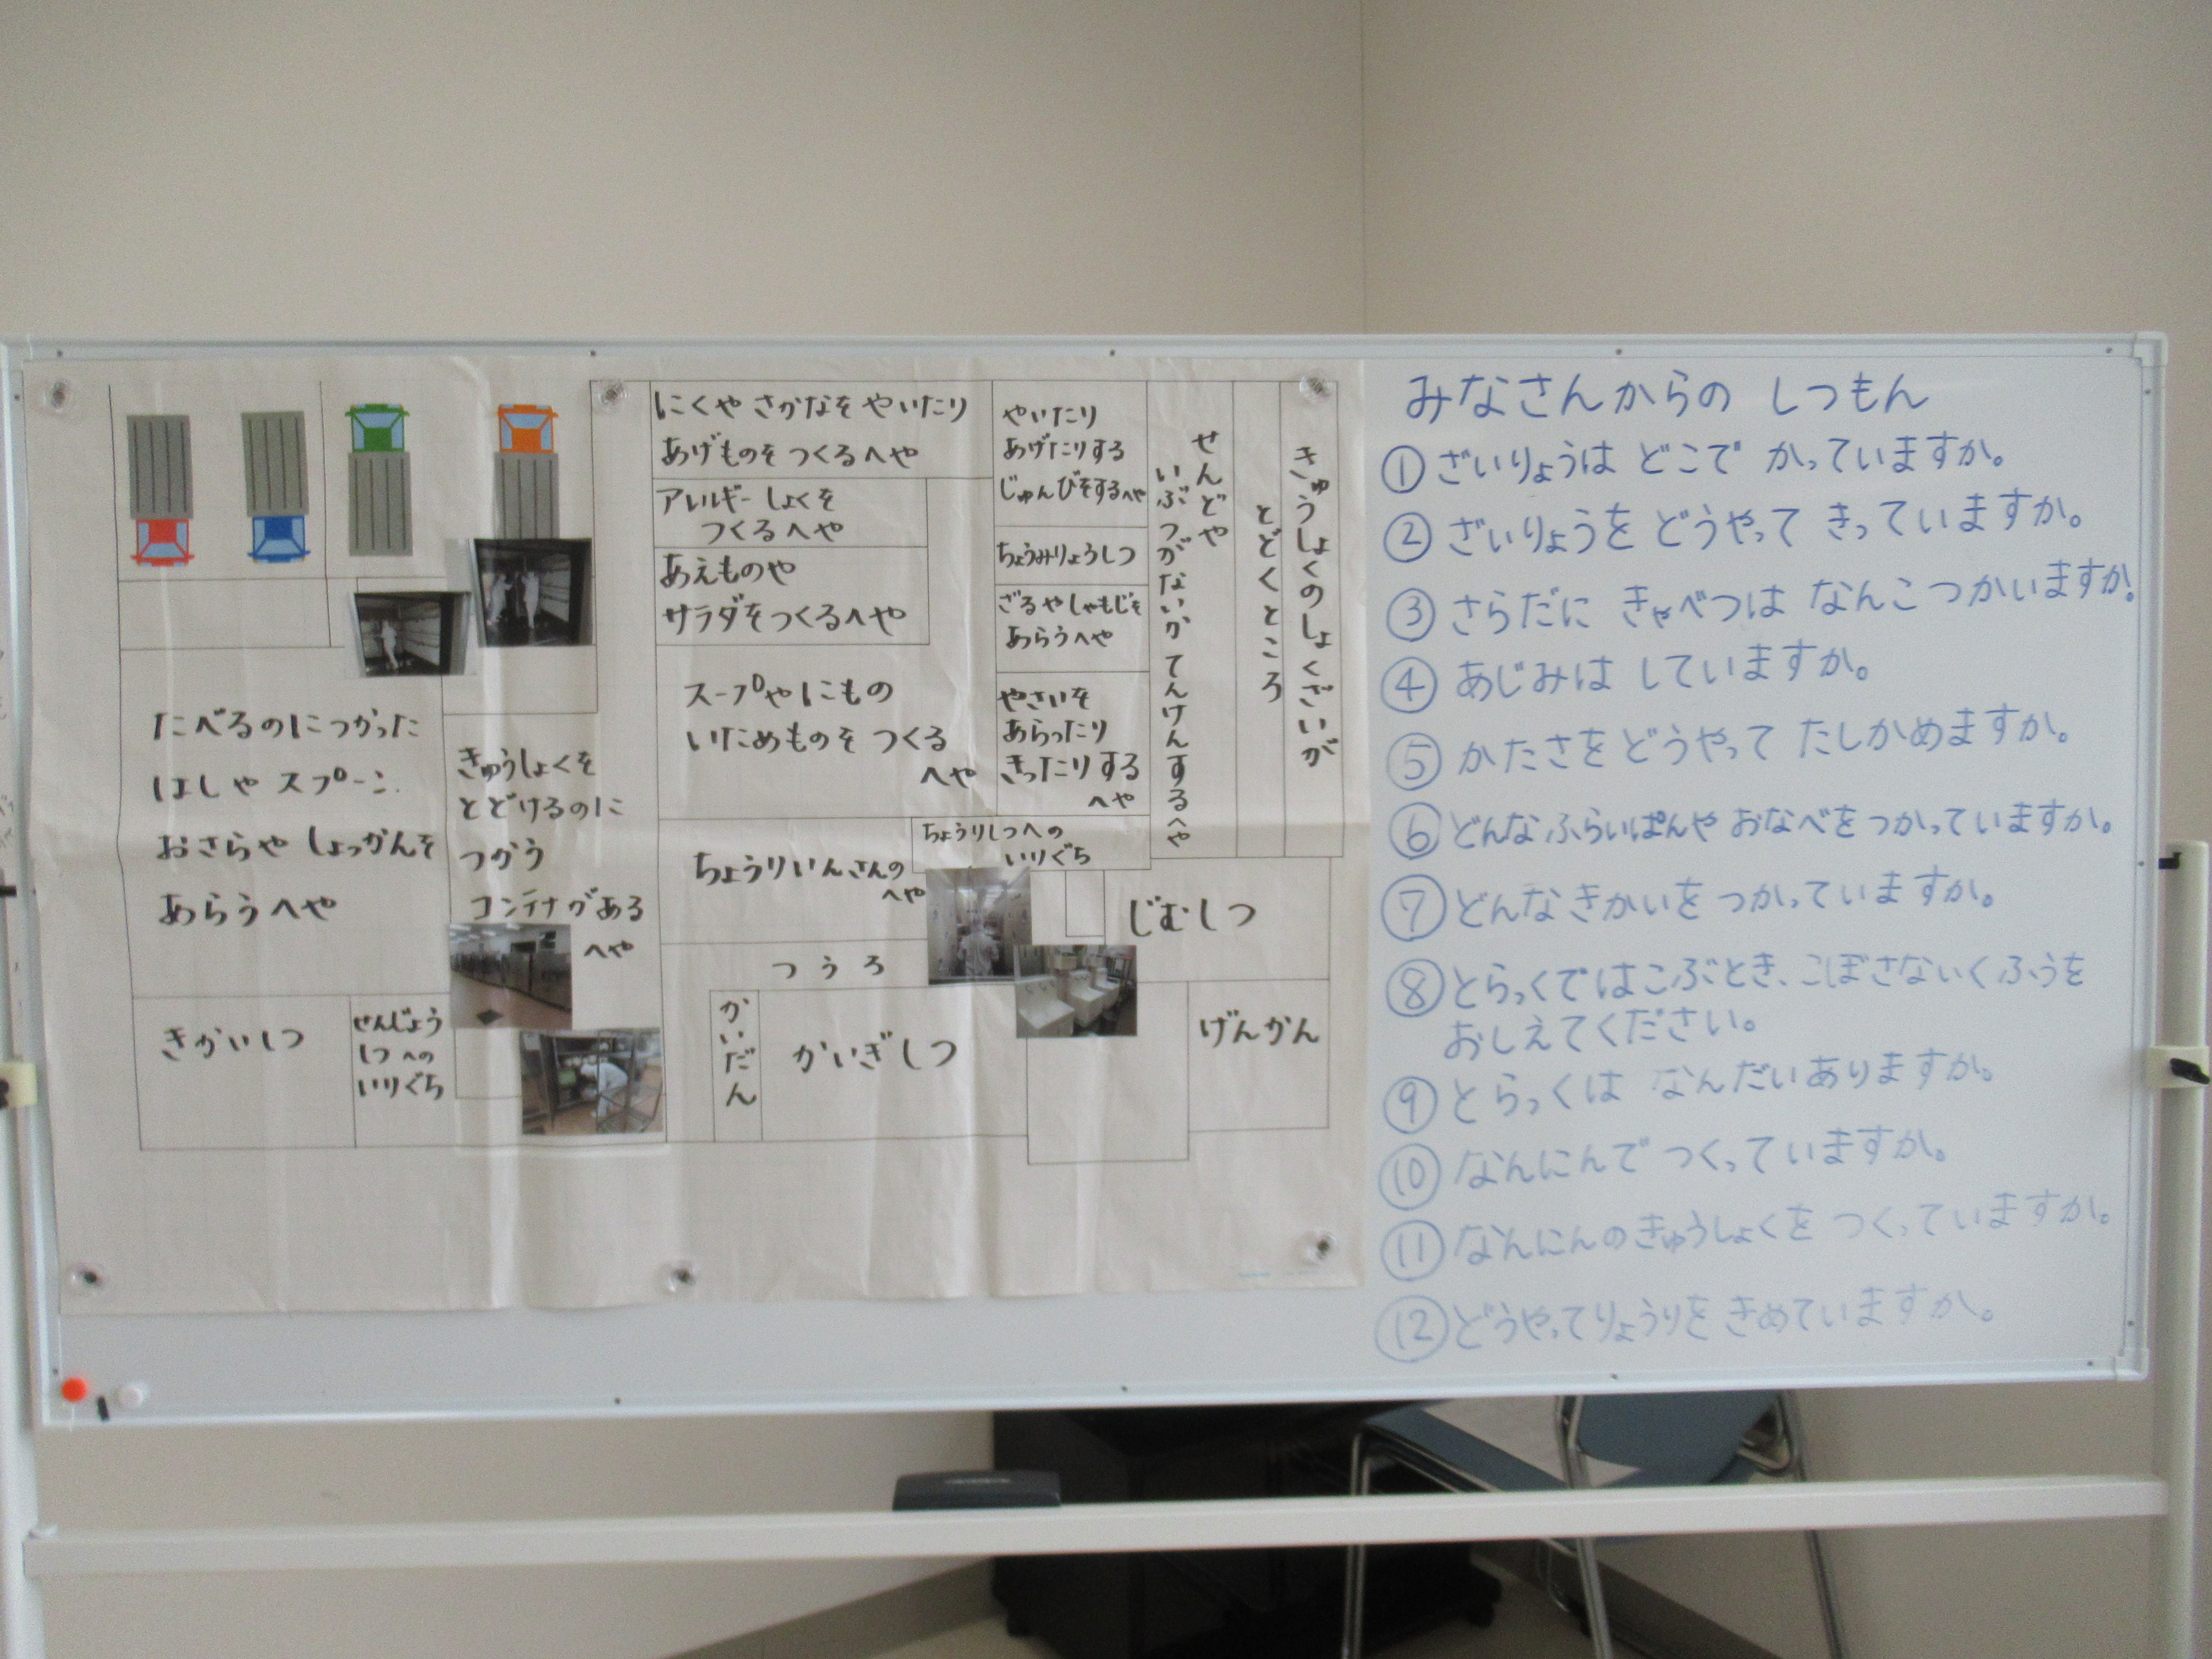 にくや さかなを やいたり
あげものを つくるへや
アレルギーしょくを
つくるへや
あえものや
サラダをつくるへや
スープやにもの
いためものを つくる
へや
やいたり
あげたりする
じゅんびをするへや
ちょうみりょうしつ
ざるやしゃもじを
あらうへや
やさいを
あらったり
きったりする
へや
きゅうしょくのしょくざいが
とどくところ
せんどや
いぶつがないか てんけんするへや
たべるのにつかった
はしや スプーン
おさらや しょっかんを
あらうへや
きゅうしょくを
とどけるのに
つかう
コンテナがある
へや
ちょうりいんさんの
へや
ちょうりしつへの
いりぐち
じむしつ
つうろ
きかいしつ
せんじょう
しつへの
いりぐち
かいだん
かいぎしつ
げんかん
みなさんからの しつもん
① ざいりょうは どこで かっていますか。
② ざいりょうを どうやって きっていますか。
③ さらだに きゃべつは なんこつかいますか。
④ あじみは していますか。
⑤ かたさを どうやって たしかめますか。
⑥ どんなふらいぱんや おなべをつかっていますか。
⑦ どんなきかいを つかっていますか。
⑧ とらっくではこぶとき、こぼさないくふうを
おしえてください。
⑨ とらっくは なんだいありますか。
⑩ なんにんで つくっていますか。
⑪ なんにんのきゅうしょくを つくっていますか。
⑫ どうやってりょうりを きめていますか。